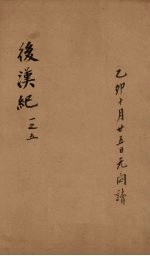 乙卯十月廿五日元同讀
後漢紀 一之五